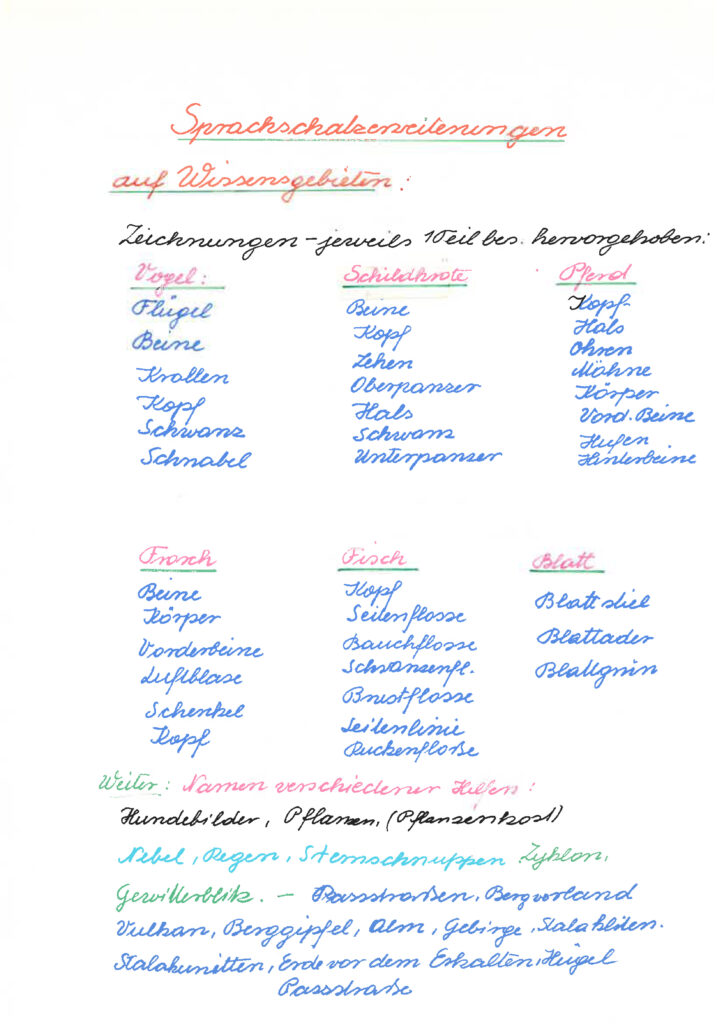 Sprachschatzerweiterungen
auf Wissensgebieten:
Zeichnungen - jeweils 1 Teil bes. hervorgehoben:
Vogel:
Flügel
Beine
Krallen
Kopf
Schwanz
Schnabel
Schildkröte
Beine
Kopf
Zehen
Oberpanzer
Hals
Schwanz
Unterpanzer
Pferd
Kopf
Hals
Ohren
Mähne
Körper
Vord. Beine
Hufen
Hinterbeine
Frosch
Beine
Körper
Vorderbeine
Luftblase
Schenkel
Kopf
Fisch
Kopf
Seitenflosse
Bauchflosse
Schwanzenfl.
Brustflosse
Seitenlinie
Ruckenfloße
Blatt
Blattstiel
Blattader
Blattgrün
Weiter: Namen verschiedener
Hundebilder, Pflanzen, (Pflanzenkost)
Nebel, Regen, Sternschnuppen Zyklon,
Gewitterblitz. - Passstraßen, Bergvorland
Vulkan, Berggipfel, Alm, Gebirge, Stalaktiten.
Stalakmitten, Erde vor dem Erkalten, Hügel
Passstraße